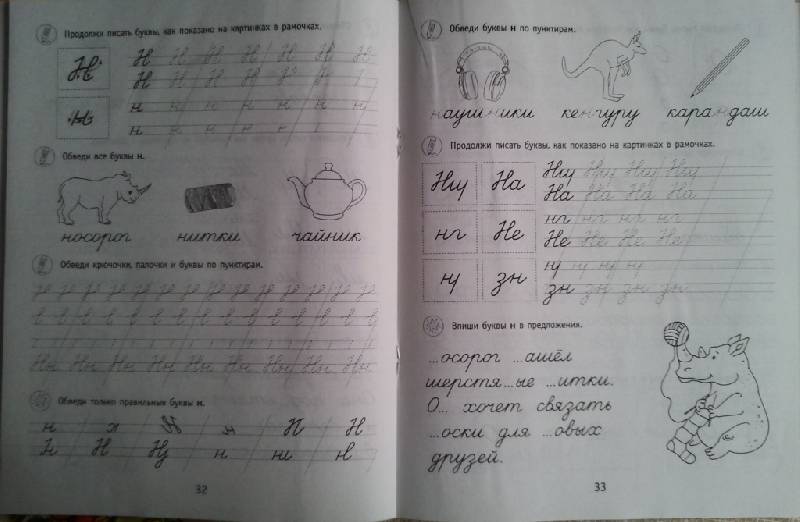 Продолжи писать буквы, как показано на картинках в рамочках.
Н Н Н Н Н Н Н Н
Н Н Н Н Н Н
н н н н н н н н
н н н н н
Обведи все буквы н.
носорог нитки чайник
Обведи крючочки, палочки и буквы по пунктирам.
Нн Нн Нн Нн Нн Нн Нн Нн Нн
Обведи только правильные буквы н.
32
Обведи буквы н по пунктирам.
наушники кенгуру карандаш
Продолжи писать буквы, как показано на картинках в рамочках.
На На На На На
Не Не Не Не Не
зн зн зн зн зн
Впиши буквы н в предложения.
...осорог ...ашёл
шерстя...ые ...итки.
О... хочет связать
...оски для ...овых
друзей.
33